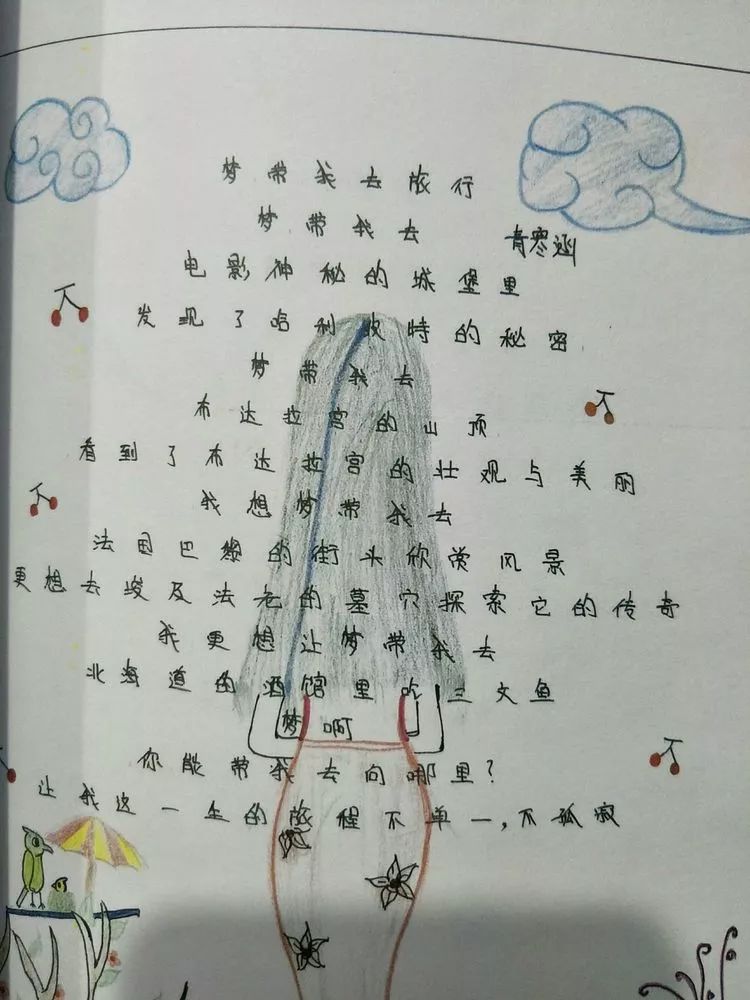 梦带我去旅行
梦带我去
青寒
电影神秘的城堡里
发现了哈利波特的秘密
梦带我去
布达拉宫的山顶
看到了布达拉宫的壮观与美丽
我想梦带我去
法国巴黎的街头欣赏风景
更想去埃及法老的墓穴探索它的传奇
我更想让梦带我去
北海道的酒馆里吃三文鱼
梦啊
你能带我去向哪里?
让我这一生的旅程不单一,不孤寂